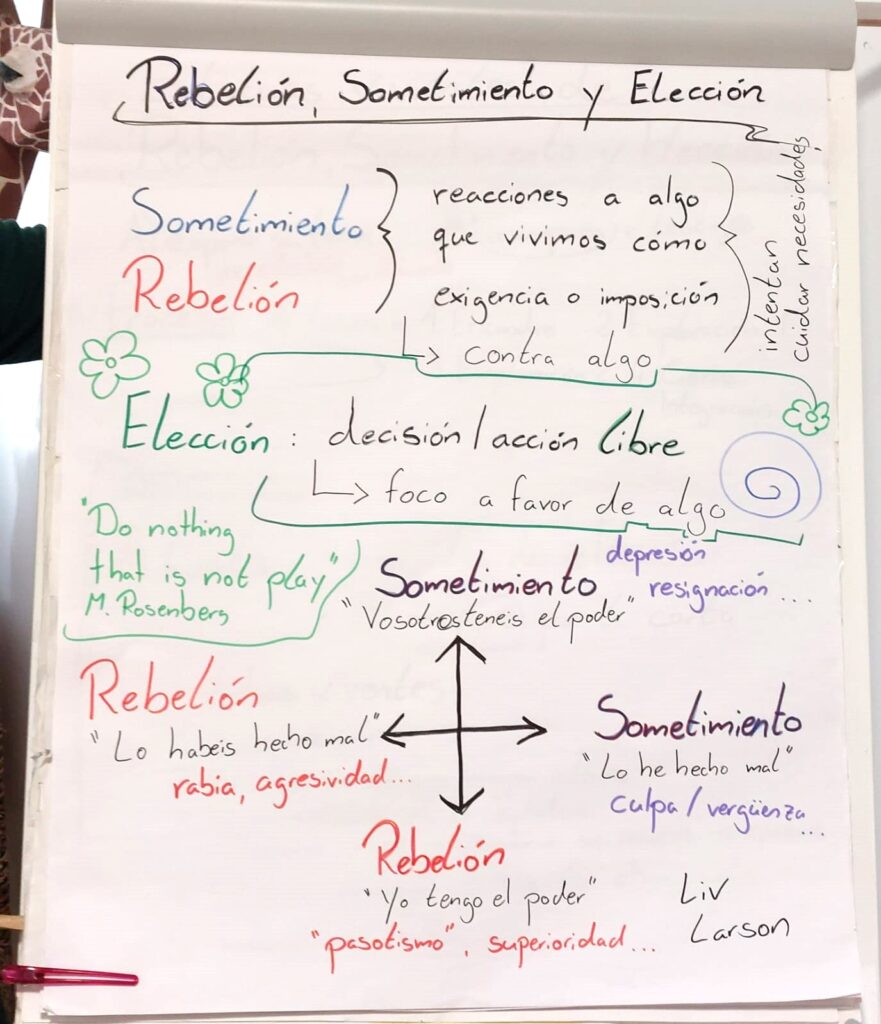 Rebelión, Sometimiento y Elección
Sometimiento
Rebelión
reacciones a algo
que vivimos cómo
exigencia o imposición
intentan
cuidar necesidades
↳ contra algo
Elección: decisión/acción libre
↳ foco a favor de algo
"Do nothing
that is not play"
M. Rosenberg
Sometimiento
"Vosotros teneis el poder"
depresión
resignación...
Rebelión
"Lo habeis hecho mal"
rabia, agresividad...
Sometimiento
"Lo he hecho mal"
culpa/vergüenza...
Rebelión
"Yo tengo el poder"
"pasotismo", superioridad...
Liv
Larson